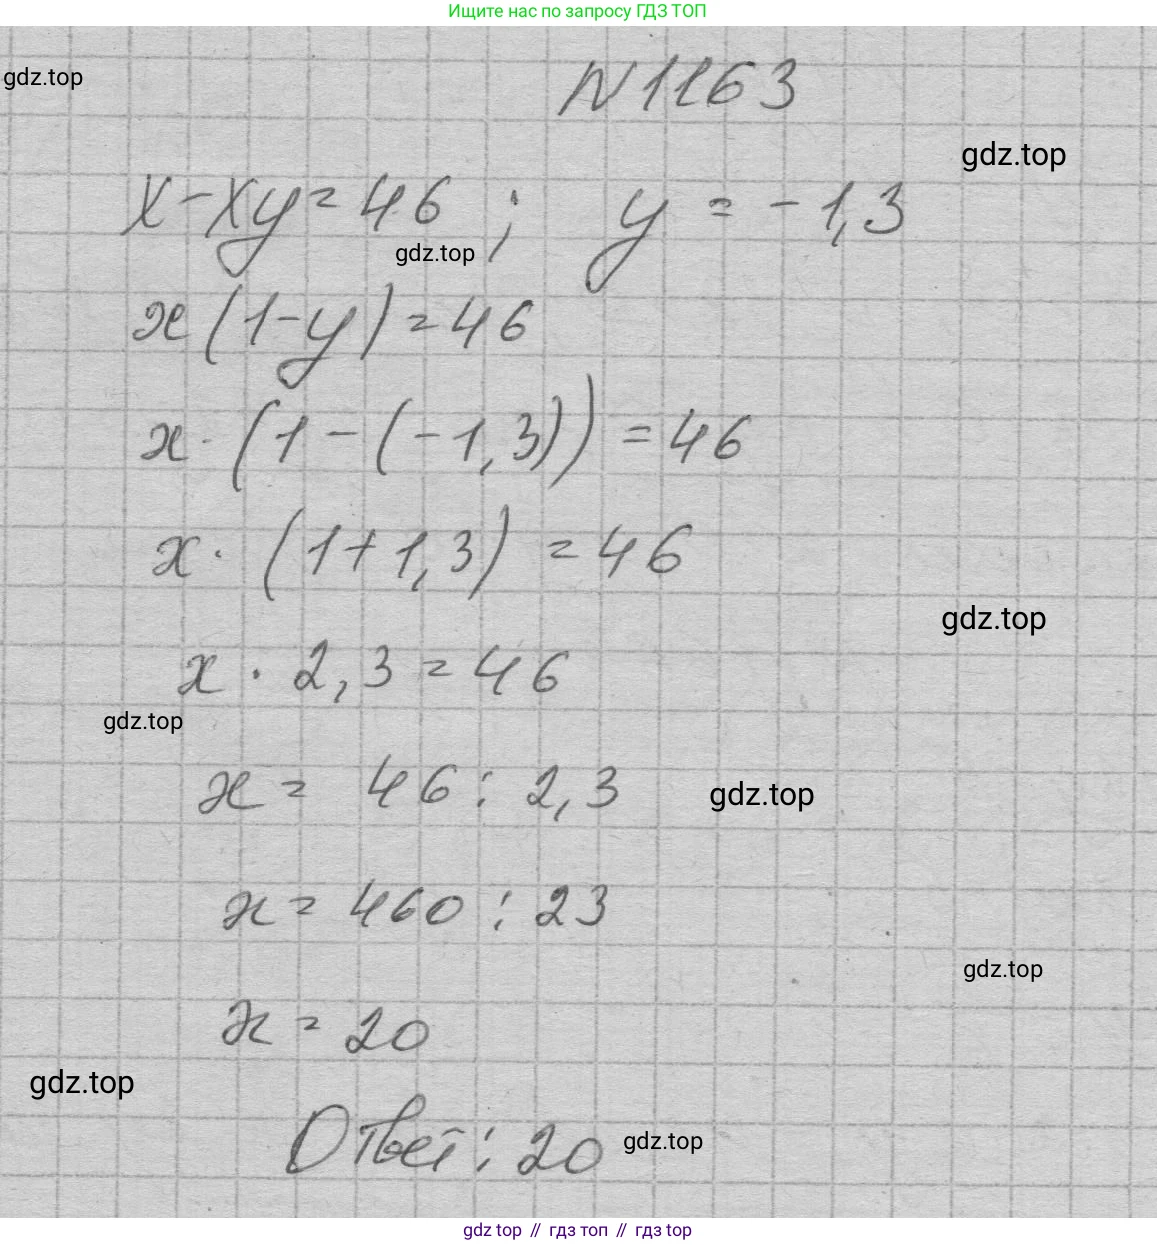 Ищите нас по запросу ГДЗ ТОП
N 1163
gdz.top
gdz.top
x-xy=46 ; y = -1,3
gdz.top
x(1-y)=46
x·(1-(-1,3))=46
x·(1+1,3)=46
gdz.top
x·2,3=46
gdz.top
x=46:2,3
gdz.top
x=460:23
gdz.top
x=20
gdz.top
Ответ: 20
gdz.top
gdz top // гдз топ // гдз top